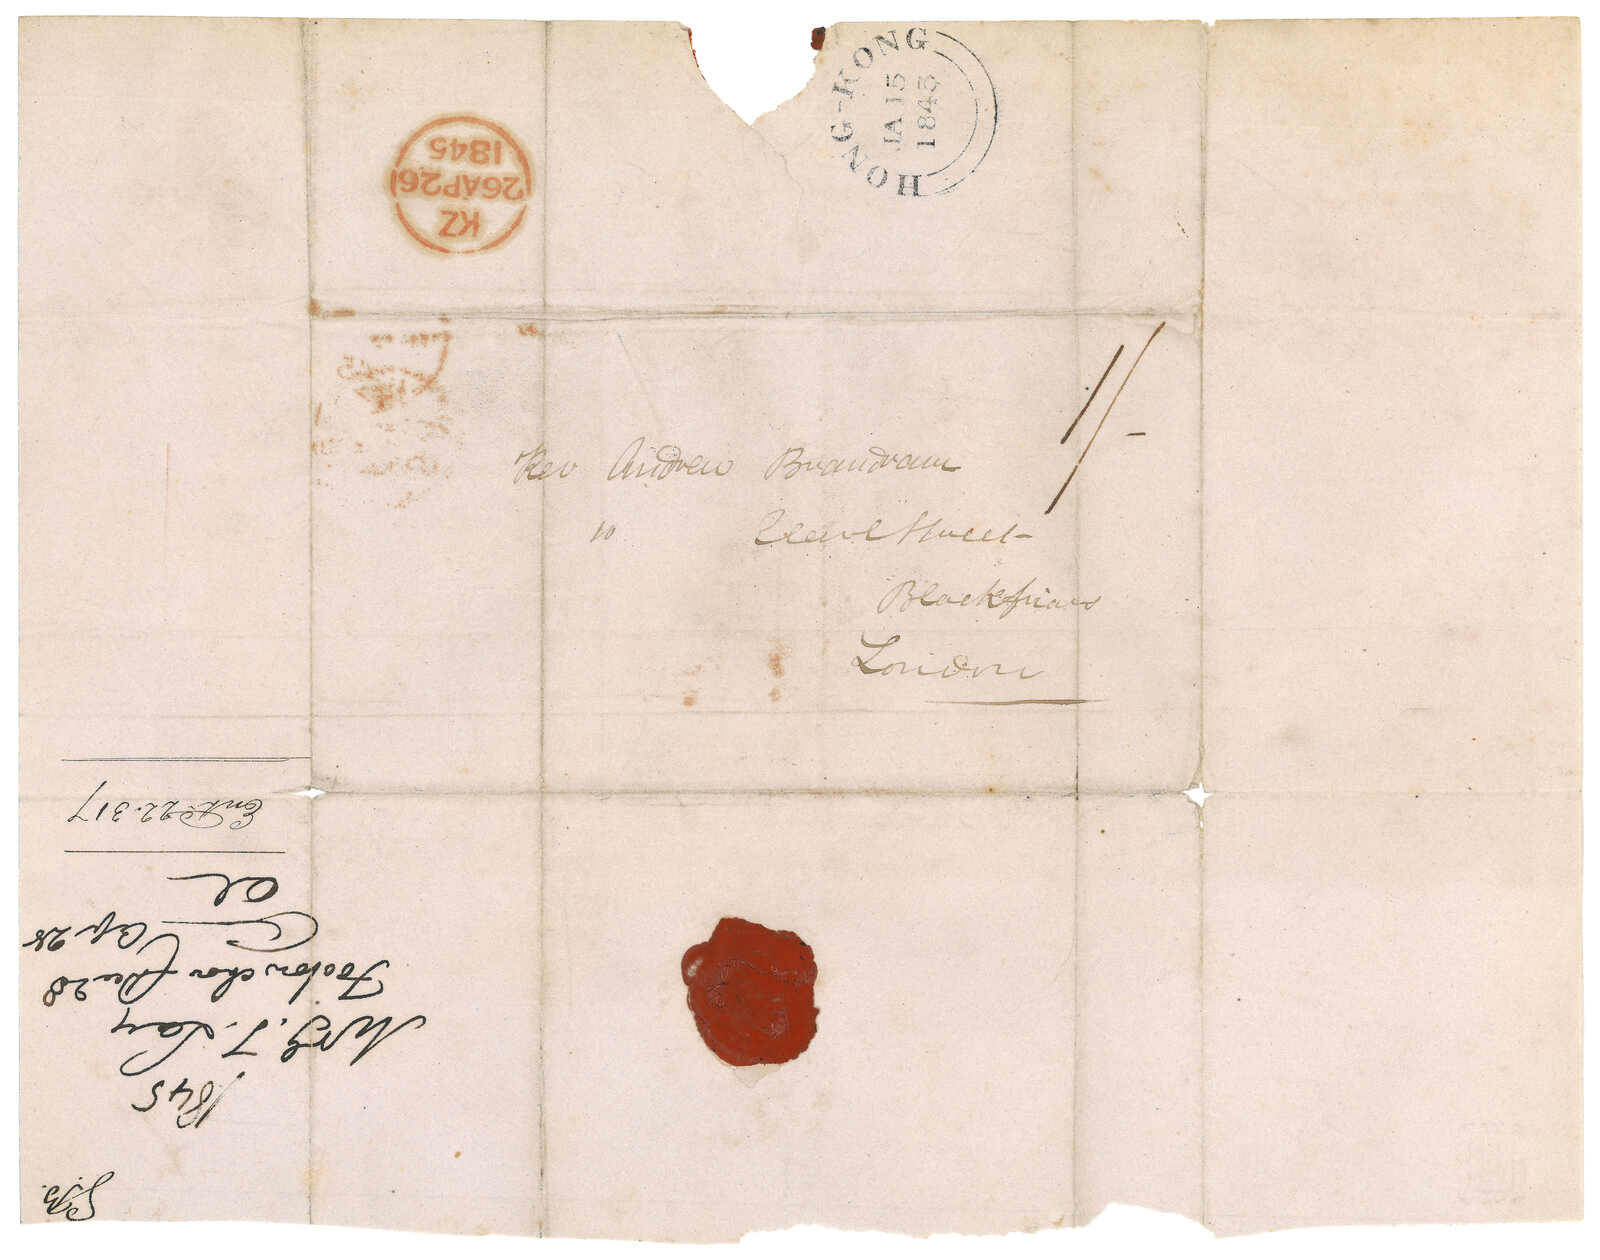 HONG-KONG
JA 15
1845
KZ
26AP26
1845
1/-
Rev Andrew Brandram
10 Earl Street
Blackfriars
London
G.B.
1845
Mr G. T. Lay
Foochow choo Dec 28
Ap. 28
Ent 22.317